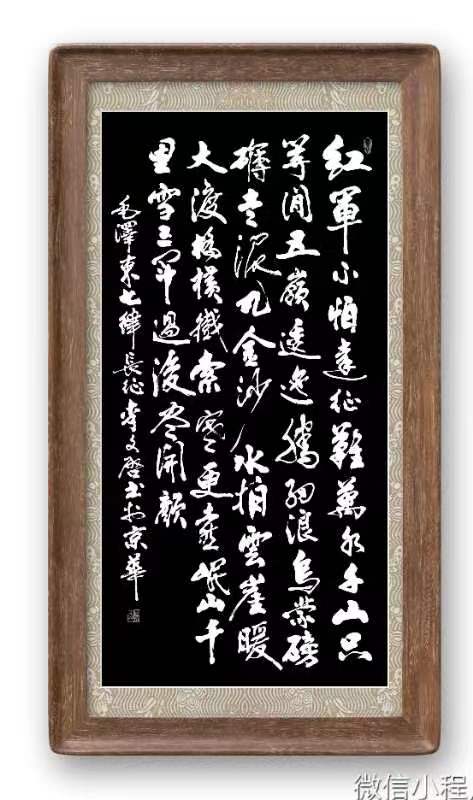 紅軍不怕遠征難萬水千山只
等閒五嶺逶迤騰細浪烏蒙磅
礴走泥丸金沙水拍雲崖暖
大渡橋橫鐵索寒更喜岷山千
里雪三軍過後盡開顏
毛澤東七律長征李文啓书於京華
微信小程